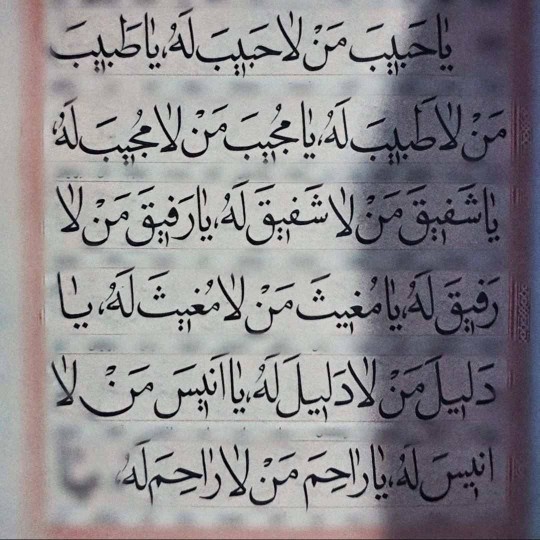 يٰا حَبيبَ مَنْ لاٰ حَبيبَ لَهُ، يٰا طَبيبَ
مَنْ لاٰ طَبيبَ لَهُ، يٰا مُجيبَ مَنْ لاٰ مُجيبَ لَهُ،
يٰا شَفيقَ مَنْ لاٰ شَفيقَ لَهُ، يٰا رَفيقَ مَنْ لاٰ
رَفيقَ لَهُ، يٰا مُغيثَ مَنْ لاٰ مُغيثَ لَهُ، يٰا
دَليلَ مَنْ لاٰ دَليلَ لَهُ، يٰا اَنيسَ مَنْ لاٰ
اَنيسَ لَهُ، يٰا رٰاحِمَ مَنْ لاٰ رٰاحِمَ لَهُ،